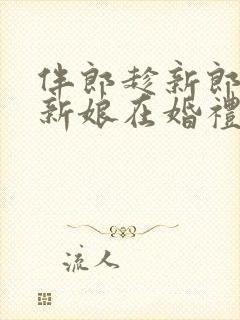 伴郎趁新郎
新娘在婚禮
流人